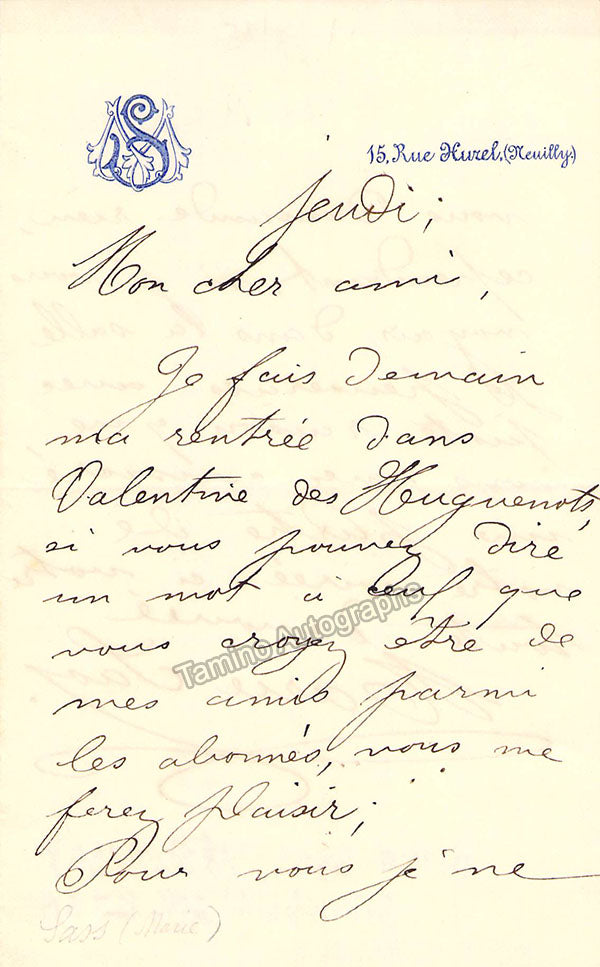 15, Rue Hurel, (Neuilly.)
jeudi;
Mon cher ami,
Je fais demain
ma rentrée dans
Valentine des Huguenots,
si vous pouvez dire
un mot à ceux que
vous croyez être de
mes amis parmi
les abonnés, vous me
ferez plaisir;
Pour vous je ne
Sass (Marie)
Tamino Autographs